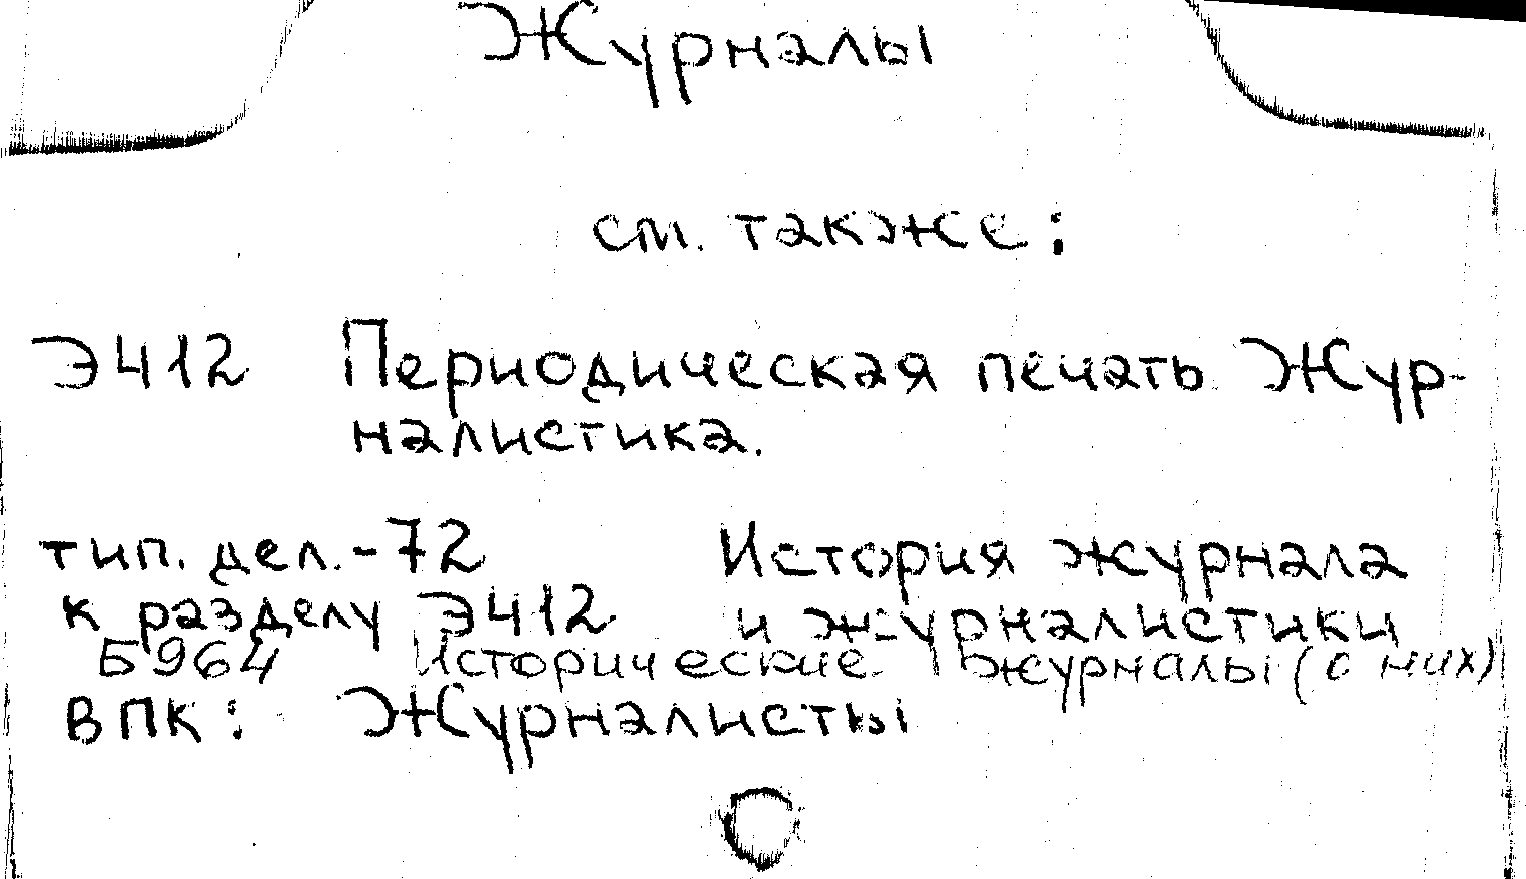 Журналы
см. также:
Э412 Периодическая печать Жур-
налистика.
тип. дел.-72 История журнала
к разделу Э412 и журналистики
Б964 Исторические журналы (о них)
ВПК: Журналисты